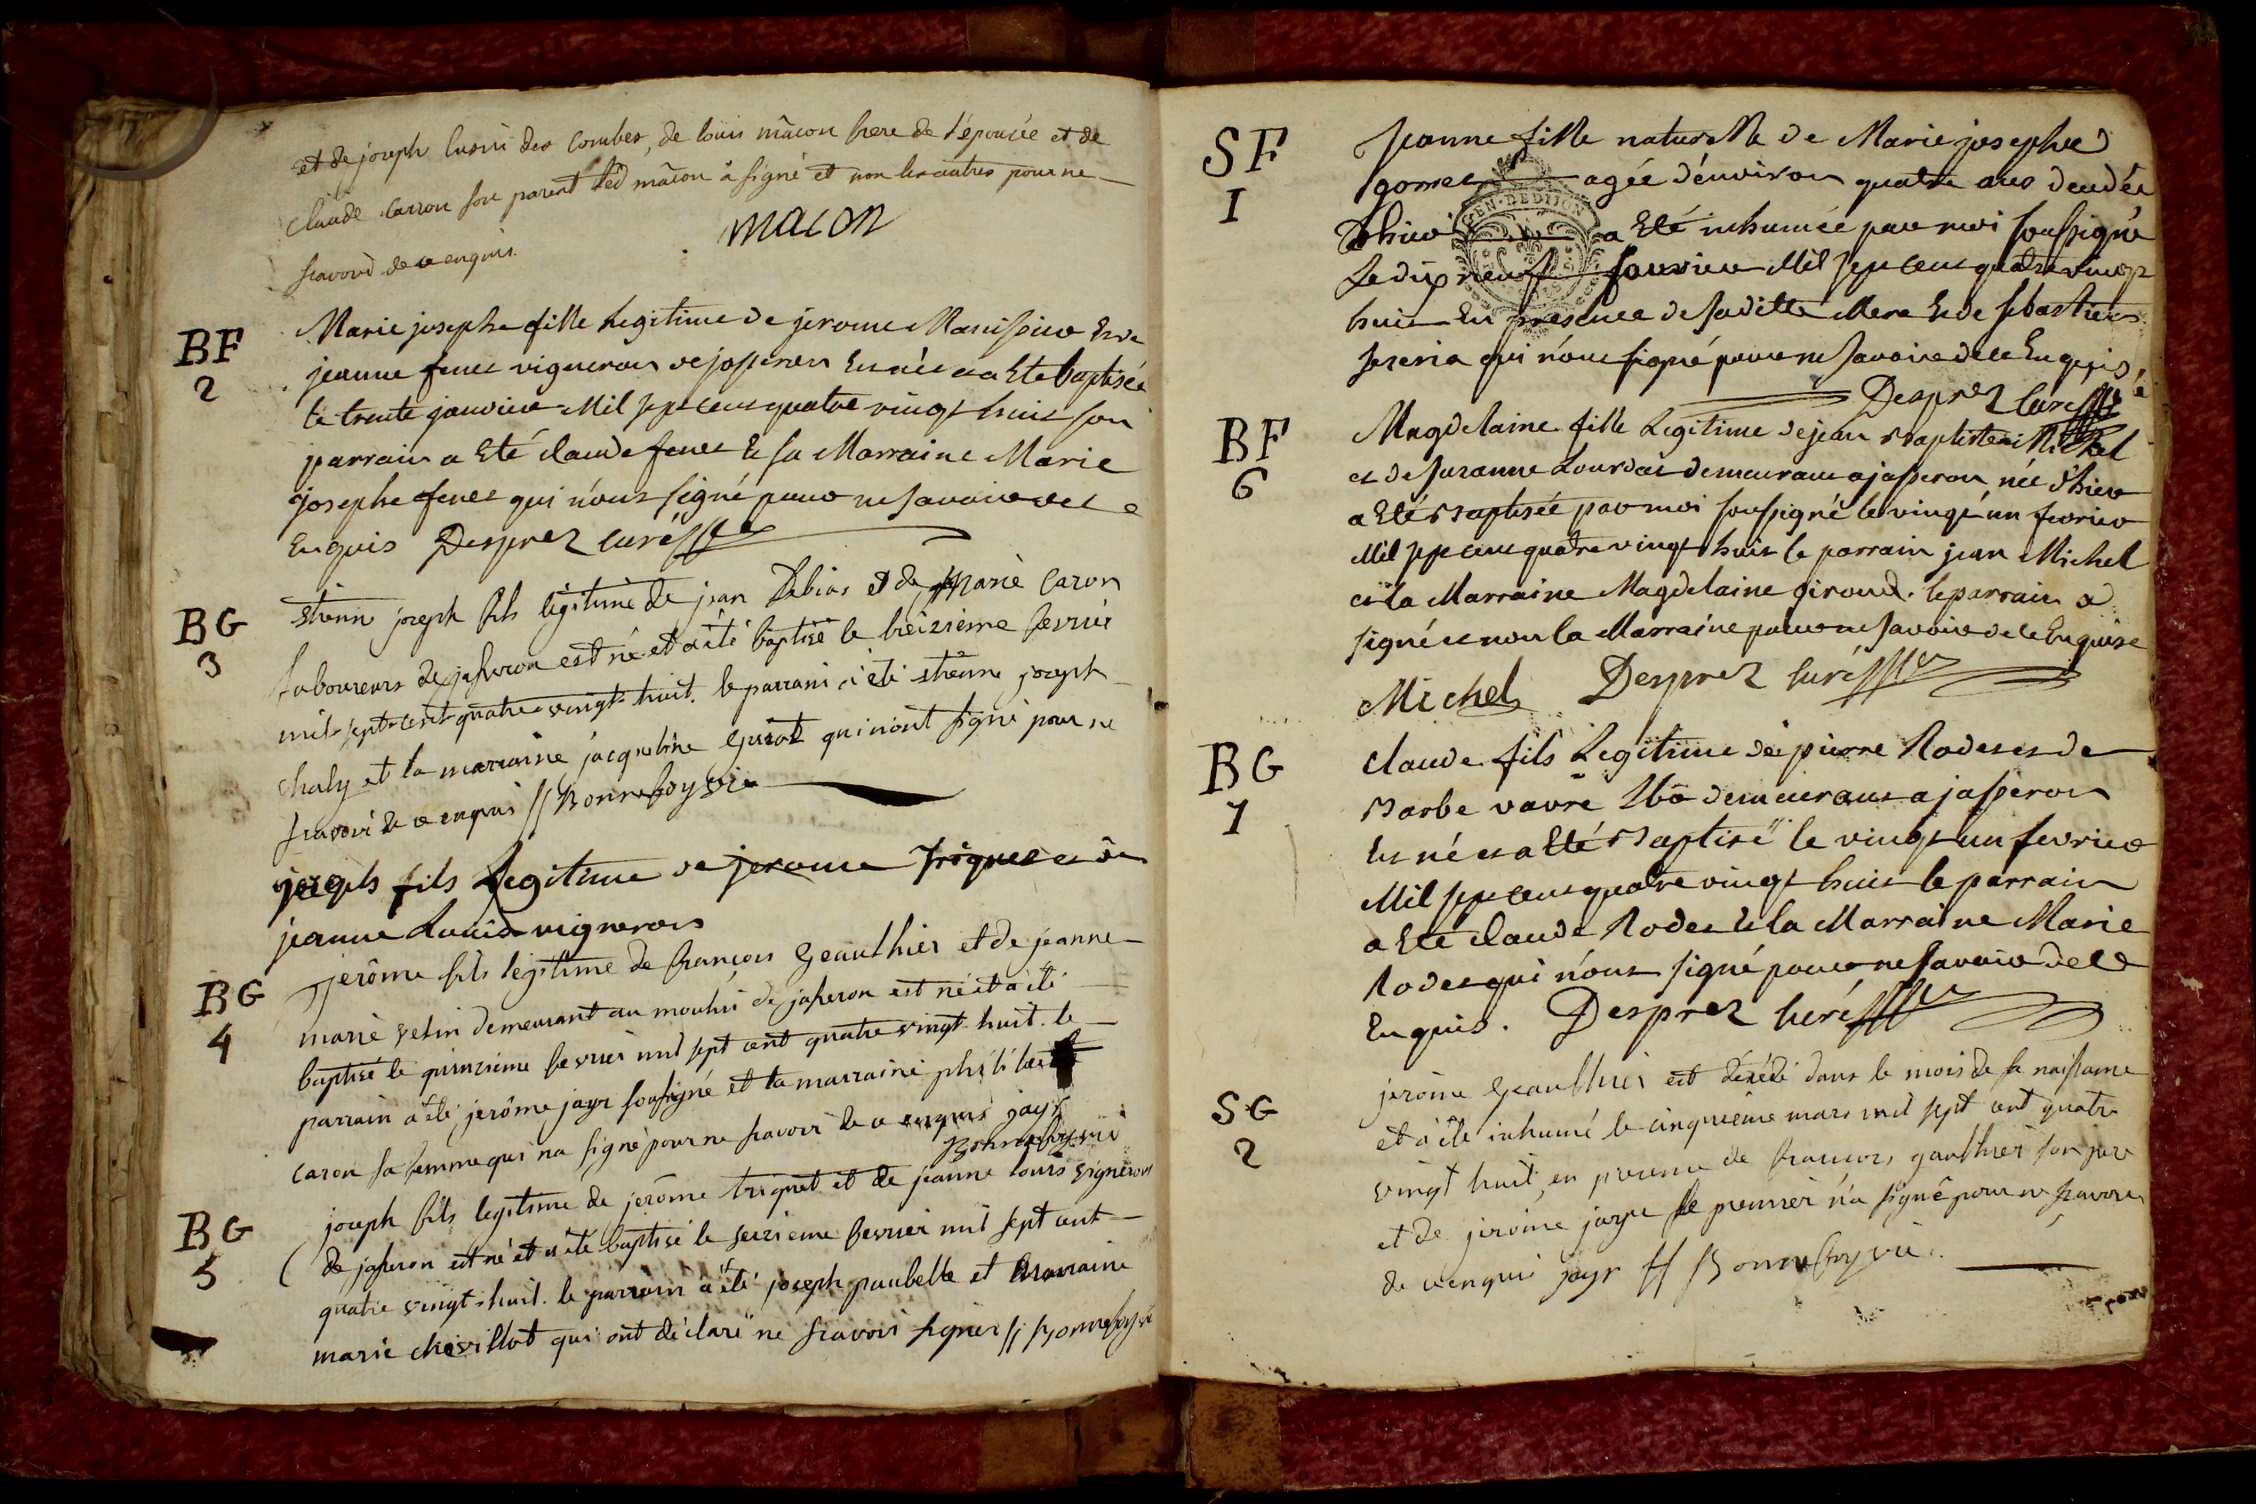 et de joseph des combes, de louis mâcon frere de l'épousée et de
claude carron son parent led mâcon à signé et non les autres pour ne
sçavoir de ce enquis.
macon
BF
2
Marie josephe fille legitime de jerome et de
jeanne feuet vigneron de jasseron est née et a Eté baptisée
le trente janvier Mil sept cent quatre vingt huit son
parrain a Eté claude feuet & sa Marraine Marie
josephe feuet qui n'ont signé pour ne savoir de ce
Enquis Desprez curé
BG
3
etienne joseph fils légitime de jean Debias et de marie caron
laboureurs de jasseron est né et a été baptisé le treizieme fevrier
mil sept cent quatre vingt huit. le parrain a été etienne joseph
chaly et la marraine jacqueline guiot qui n'ont signé pour ne
sçavoir de ce enquis // Bonnefoy vic
joseph fils Legitime de jerome Triquet et de
jeanne Louis vigneron
BG
4
jerôme fils légitime de françois Geauthier et de jeanne
marie velin demeurant au moulin de jasseron est né et a été
baptisé le quinzieme fevrier mil sept cent quatre vingt huit. le
parrain à été jerôme jayr soussigné et la marraine
caron sa femme qui n'a signé pour ne sçavoir de ce enquis jayr
Bonnefoy vic
BG
5
joseph fils legitime de jerôme triquet et de jeanne louis vignerons
de jasseron est né et a été baptisé le seizieme fevrier mil sept cent
quatre vingt huit. le parrain à été joseph paubelle et marraine
marie chevillot qui ont déclaré ne sçavoir signer // Bonnefoy vic
SF
1
GEN. DE DIJON
Jeanne fille naturelle de Marie josephe
gomet agée d'environ quatre ans decedée
d'hier a Eté inhumée par moi soussigné
Le dix neuf janvier Mil sept cent quatre vingt
huit En presence de saditte Mere & de sebastien
qui n'ont signé pour ne savoir de ce Enquis
Desprez curé
BF
6
Magdelaine fille Legitime de jean Baptiste Michel
et de suzanne Lourdat demeurant a jasseron née d'hier
a Eté Baptisée par moi soussigné le vingt un fevrier
Mil sept cent quatre vingt huit le parrain jean Michel
et la Marraine Magdelaine giroud. le parrain a
signé et non la Marraine pour ne savoir de ce Enquise
Michel Desprez curé
BG
7
claude fils Legitime de pierre Rodet et de
Barbe vavre demeurant a jasseron
Est né et a Eté Baptisé le vingt un fevrier
Mil sept cent quatre vingt huit le parrain
a Eté claude Rodet & la Marraine Marie
Rodet qui n'ont signé pour ne savoir de ce
Enquis. Desprez curé
SG
2
jerome Geauthier est décédé dans le mois de sa naissance
et a été inhumé le cinquième mars mil sept cent quatre
vingt huit, en presence de françois gauthier son pere
et de jerôme jayr le premier n'a signé pour ne sçavoir
de ce enquis jayr // Bonnefoy vic.